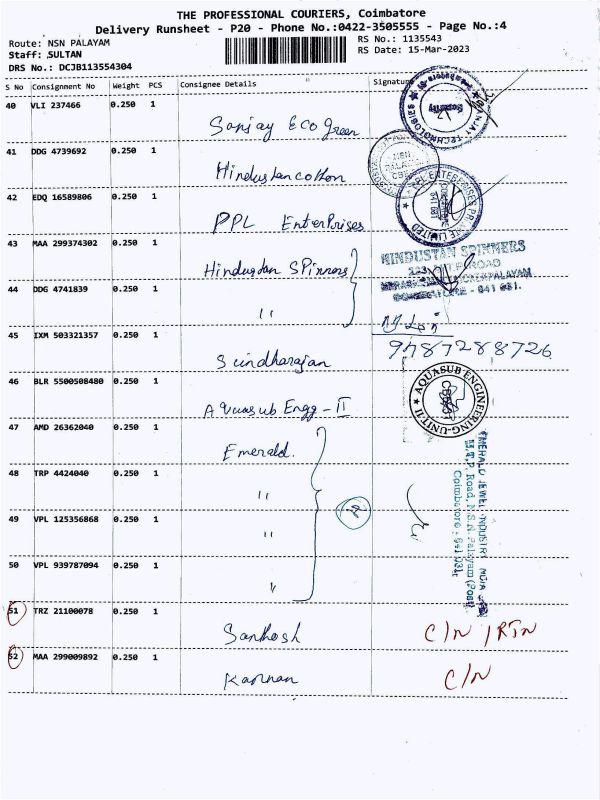 THE PROFESSIONAL COURIERS, Coimbatore
Delivery Runsheet - P20 - Phone No.:0422-3505555 - Page No.:4
Route: NSN PALAYAM RS No.: 1135543
Staff: SULTAN RS Date: 15-Mar-2023
DRS No.: DCJB113554304
S No Consignment No Weight PCS Consignee Details Signature
40 VLI 237466 0.250 1
Sanjay Eco Green
41 DDG 4739692 0.250 1
Hindustan cotton
42 EDQ 16589806 0.250 1
PPL EnterPrises
43 MAA 299374302 0.250 1
Hindustan SPinners
HINDUSTAN SPINNERS
44 DDG 4741839 0.250 1
"
45 IXM 503321357 0.250 1
9787288726
Sundharajan
46 BLR 5500508480 0.250 1
Aquasub Engg - II
AQUASUB ENGINEERING-UNIT-II
47 AMD 26362040 0.250 1
Emerald.
48 TRP 4424040 0.250 1
"
49 VPL 125356868 0.250 1
"
2
50 VPL 939787094 0.250 1
"
M.T.P. Road, N.S.N. Palayam (Post)
Coimbatore - 641 031.
51 TRZ 21100078 0.250 1
Santhosh C/N /RTN
52 MAA 299009892 0.250 1
Kannan C/N